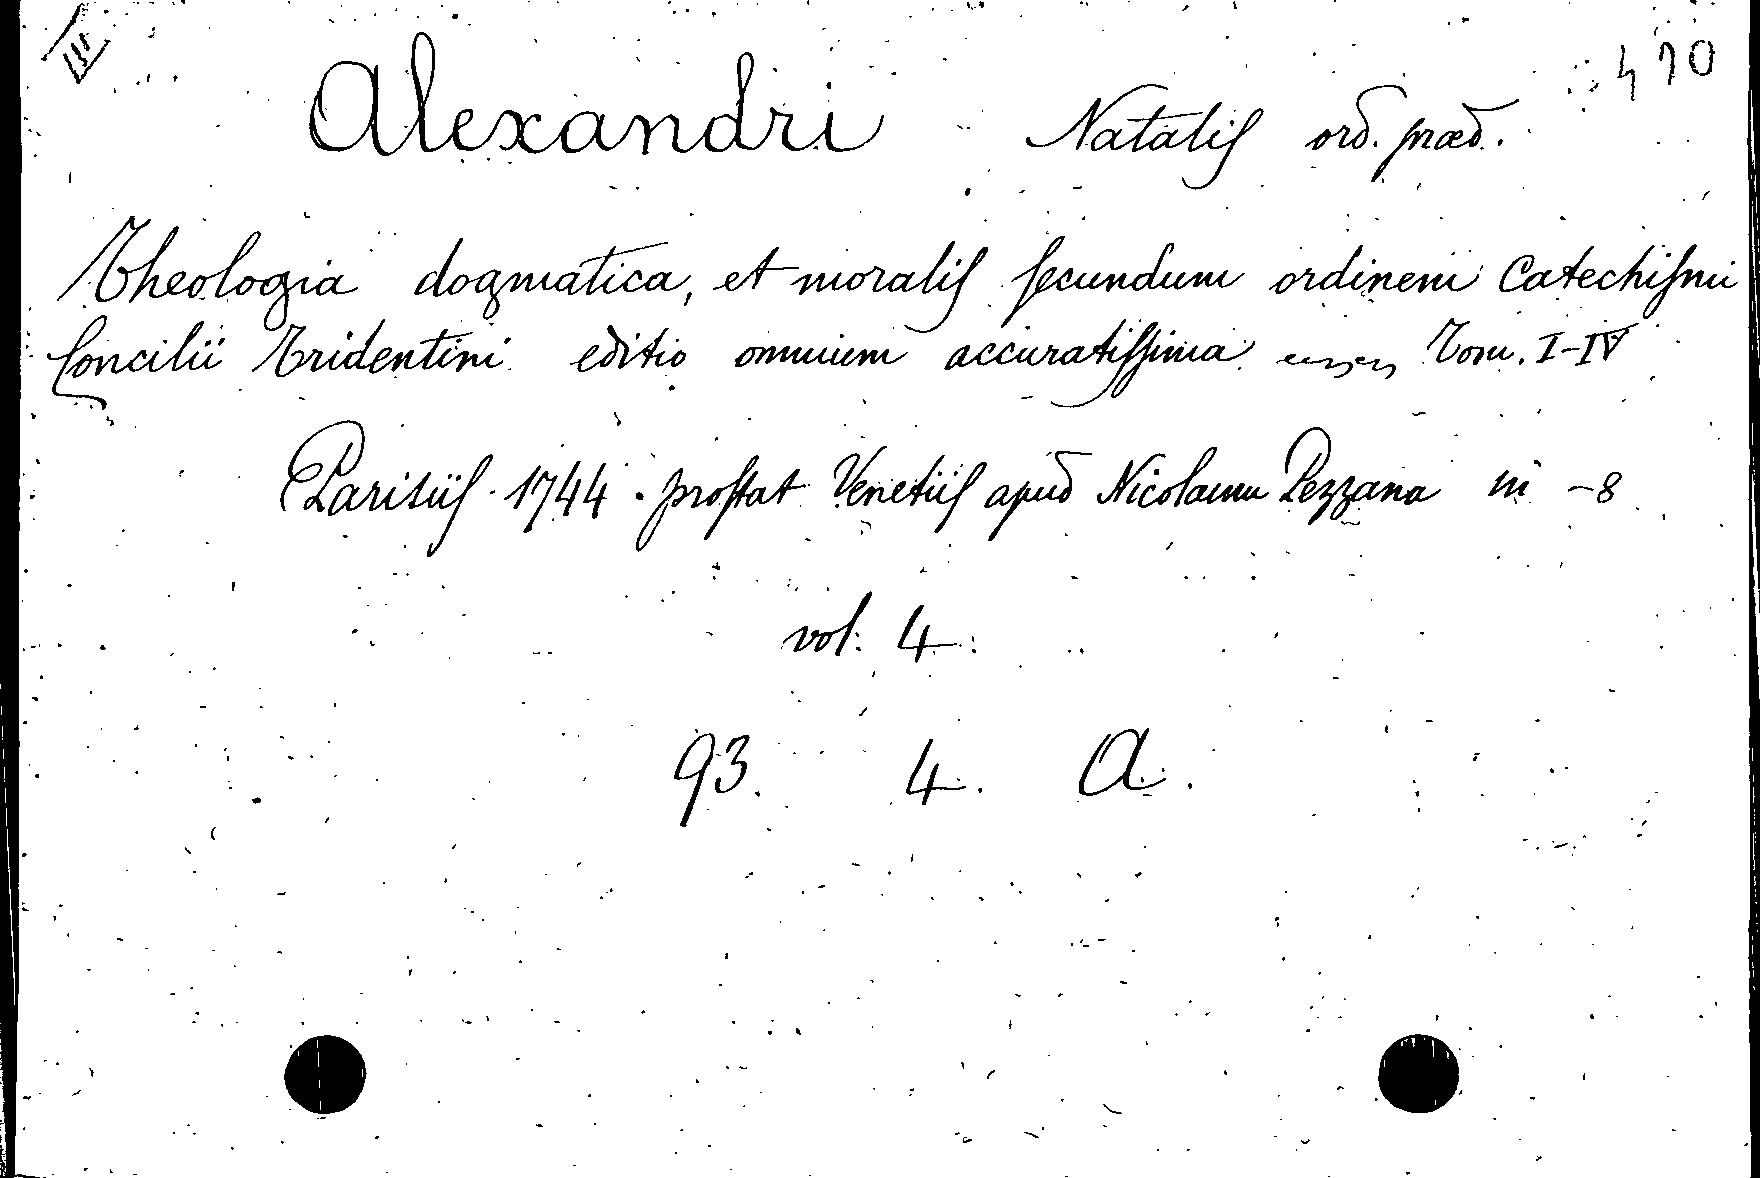 III 410
Alexandri Natalis ord. præd.
Theologia dogmatica, et moralis secundum ordinem Catechismi
Concilii Tridentini editio omnium accuratissima Tom. I-IV
Parisiis 1744. prostat Venetiis apud Nicolaum Pezzana in -8
vol. 4.
93. 4. A.